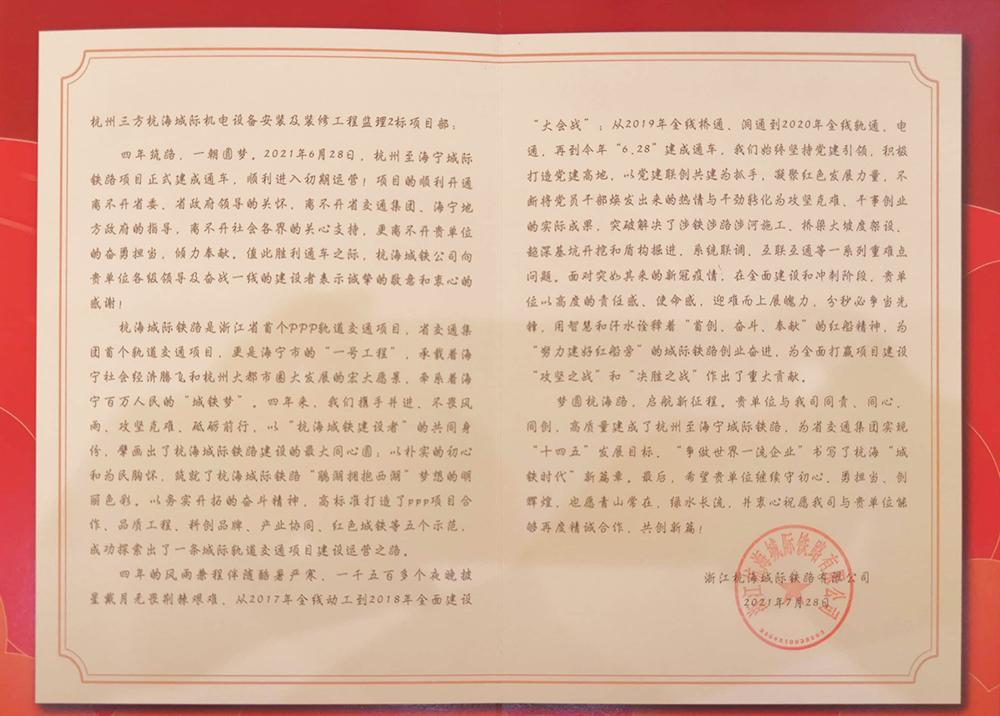 杭州三方杭海城际机电设备安装及装修工程监理2标项目部：
四年筑路，一朝圆梦。2021年6月28日，杭州至海宁城际
铁路项目正式建成通车，顺利进入初期运营！项目的顺利开通
离不开省委、省政府领导的关怀，离不开省交通集团、海宁地
方政府的指导，离不开社会各界的关心支持，更离不开贵单位
的奋勇担当，倾力奉献。值此胜利通车之际，杭海城铁公司向
贵单位各级领导及奋战一线的建设者表示诚挚的敬意和衷心的
感谢！
杭海城际铁路是浙江省首个PPP轨道交通项目，省交通集
团首个轨道交通项目，更是海宁市的“一号工程”，承载着海
宁社会经济腾飞和杭州大都市圈大发展的宏大愿景，牵系着海
宁百万人民的“城铁梦”。四年来，我们携手并进、不畏风
雨、攻坚克难、砥砺前行，以“杭海城铁建设者”的共同身
份，擘画出了杭海城际铁路建设的最大同心圆；以朴实的初心
和为民胸怀，筑就了杭海城际铁路“鹃湖拥抱西湖”梦想的明
丽色彩。以务实开拓的奋斗精神，高标准打造了ppp项目合
作、品质工程、科创品牌、产业协同、红色城铁等五个示范，
成功探索出了一条城际轨道交通项目建设运营之路。
四年的风雨兼程伴随酷暑严寒，一千五百多个夜晚披
星戴月无畏荆棘艰难，从2017年全线动工到2018年全面建设
“大会战”；从2019年全线桥通、洞通到2020年全线轨通、电
通，再到今年“6.28”建成通车，我们始终坚持党建引领，积极
打造党建高地，以党建联创共建为抓手，凝聚红色发展力量，不
断将党员干部焕发出来的热情与干劲转化为攻坚克难、干事创业
的实际成果，突破解决了涉铁涉路涉河施工、桥梁大坡度架设、
超深基坑开挖和盾构掘进、系统联调、互联互通等一系列重难点
问题。面对突如其来的新冠疫情，在全面建设和冲刺阶段，贵单
位以高度的责任感、使命感，迎难而上展魄力，分秒必争当先
锋，用智慧和汗水诠释着“首创、奋斗、奉献”的红船精神，为
“努力建好红船旁”的城际铁路创业奋进，为全面打赢项目建设
“攻坚之战”和“决胜之战”作出了重大贡献。
梦圆杭海路，启航新征程。贵单位与我司同责、同心、
同创，高质量建成了杭州至海宁城际铁路，为省交通集团实现
“十四五”发展目标、“争做世界一流企业”书写了杭海“城
铁时代”新篇章。最后，希望贵单位继续守初心、勇担当、创
辉煌，也愿青山常在，绿水长流，并衷心祝愿我司与贵单位能
够再度精诚合作，共创新篇！
浙江杭海城际铁路有限公司
2021年7月28日
浙江杭海城际铁路有限公司